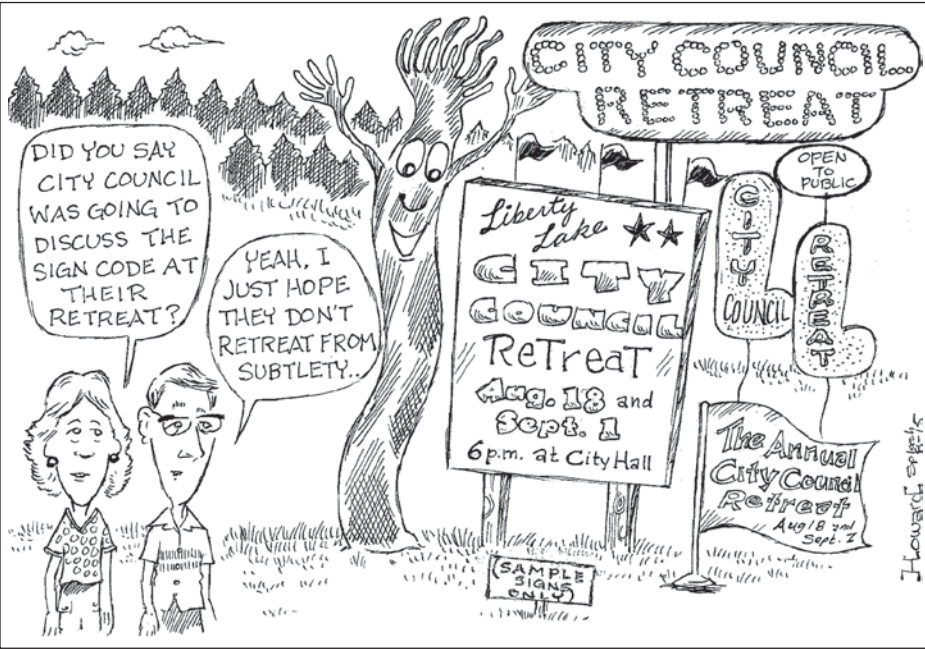 DID YOU SAY
CITY COUNCIL
WAS GOING TO
DISCUSS THE
SIGN CODE AT
THEIR
RETREAT?
YEAH, I
JUST HOPE
THEY DON'T
RETREAT FROM
SUBTLETY..
CITY COUNCIL...
RETREAT
Liberty
Lake
CITY
COUNCIL
ReTreaT
Aug. 18 and
Sept. 1
6 p.m. at City Hall
CITY
COUNCIL
OPEN
TO
PUBLIC
RETREAT
The Annual
City Council
Retreat
Aug 18 and
Sept. 1
(SAMPLE
SIGNS
ONLY)
Howard